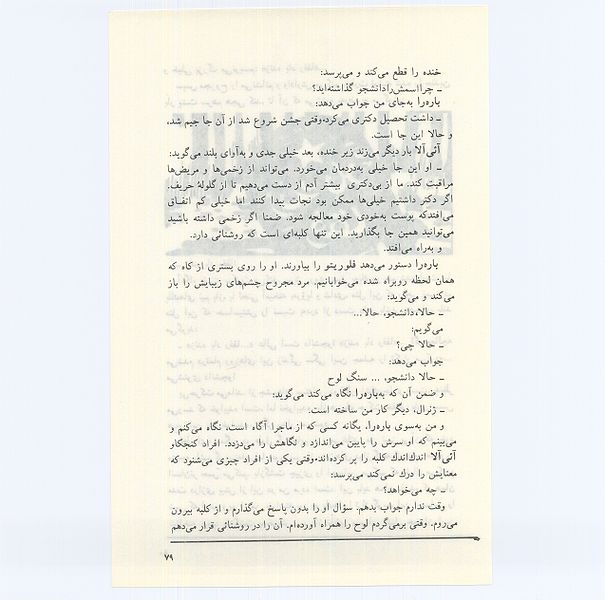 خنده را قطع می‌کند و می‌پرسد:
ـ چرااسمش‌رادانشجو گذاشته‌اید؟
یاره‌را به‌جای من جواب می‌دهد:
ـ داشت تحصیل دکتری می‌کرد.وقتی جشن شروع شد از آن جا جیم شد،
و حالا این جا است.
آتی‌آلا بار دیگر می‌زند زیر خنده، بعد خیلی جدی و به‌آوای بلند می‌گوید:
ـ او این جا خیلی به‌دردمان می‌خورد. می‌تواند از زخمی‌ها و مریض‌ها
مراقبت کند. ما از بی‌دکتری بیشتر آدم از دست می‌دهیم تا از گلولهٔ حریف.
اگر دکتر داشتیم خیلی‌ها ممکن بود نجات پیدا کنند اما خیلی کم اتفـاق
می‌افتدکه پوست به‌خودی خود معالجه شود. ضمنا اگر زخمی داشته باشید
می‌توانید همین جا بگذارید. این تنها کلبه‌ای است که روشنائی دارد.
و به‌راه می‌افتد.
یاره‌را دستور می‌دهد فلوریتو را بیاورند. او را روی بستری از کاه که
همان لحظه روبراه شده می‌خوابانیم. مرد مجروح چشم‌های زیبایش را باز
می‌کند و می‌گوید:
ـ حالا،دانشجو، حالا...
می‌گویم:
ـ حالا چی؟
جواب می‌دهد:
ـ حالا دانشجو، ... سنگ لوح
و ضمن آن که به‌یاره‌را نگاه می‌کند می‌گوید:
ـ ژنرال، دیگر کار من ساخته است.
و من به‌سوی یاره‌را، یگانه کسی که از ماجرا آگاه است، نگاه می‌کنم و
می‌بینم که او سرش را پایین می‌اندازد و نگاهش را می‌دزدد. افراد کنجکاو
آتی‌آلا اندك‌اندك کلبه را پر کرده‌اند.وقتی یکی از افراد چیزی می‌شنود که
معنایش را درك نمی‌کند می‌پرسد:
ـ چه می‌خواهد؟
وقت ندارم جواب بدهم. سؤال او را بدون پاسخ می‌گذارم و از کلبه بیرون
می‌روم. وقتی برمی‌گردم لوح را همراه آورده‌ام. آن را در روشنائی قرار می‌دهم
۷۹